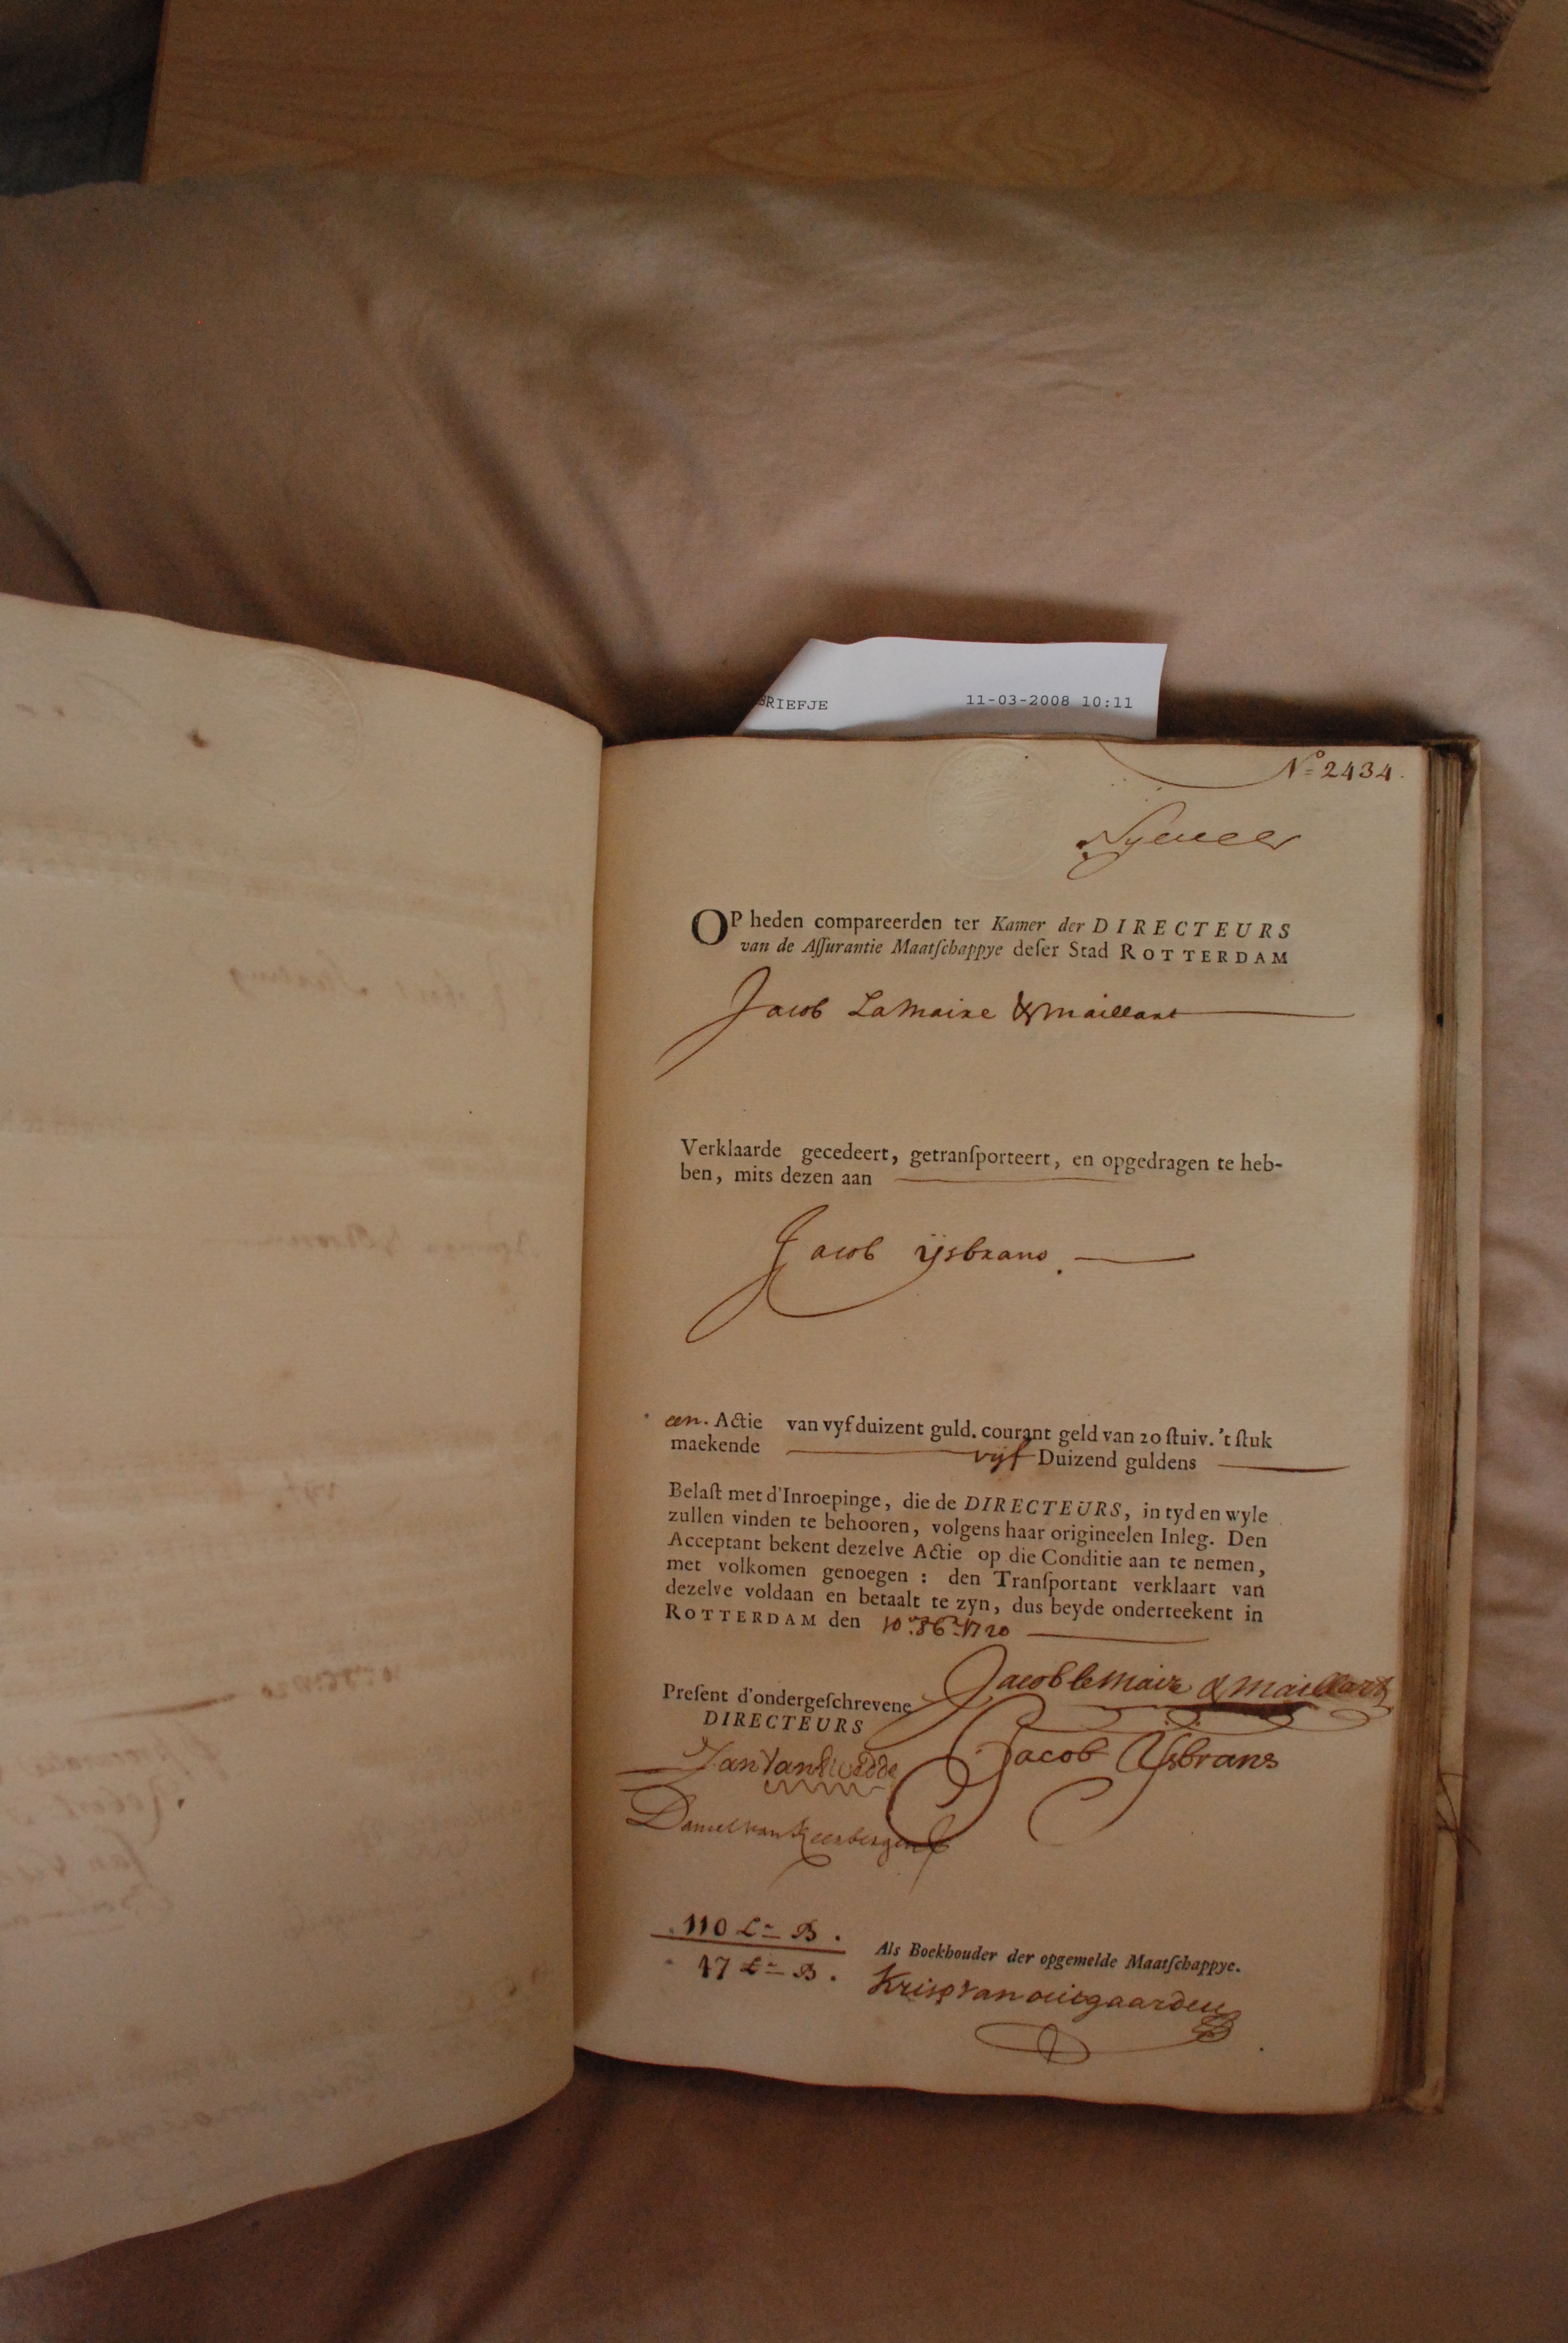 BRIEFJE 11-03-2008 10:11
No 2434.
OP heden compareerden ter Kamer der DIRECTEURS
van de Aſſurantie Maatſchappye deſer Stad ROTTERDAM
Jacob LaMaire & Maillart
Verklaarde gecedeert, getranſporteert, en opgedragen te heb-
ben, mits dezen aan
Jacob ÿsbrans.
een. Actie van vyf duizent guld. courant geld van 20 ſtuiv. 't ſtuk
maekende vijf Duizend guldens
Belaſt met d'Inroepinge, die de DIRECTEURS, in tyd en wyle
zullen vinden te behooren, volgens haar origineelen Inleg. Den
Acceptant bekent dezelve Actie op die Conditie aan te nemen,
met volkomen genoegen : den Tranſportant verklaart van
dezelve voldaan en betaalt te zyn, dus beyde onderteekent in
ROTTERDAM den 10 8br 1720
Jacob le Maire & Maillart
Preſent d'ondergeſchrevene
DIRECTEURS
Jacob Ysbrans
Jan Van
Daniel van Keerbergen
110 L B.
17 L B.
Als Boekhouder der opgemelde Maatſchappye.
Kris van